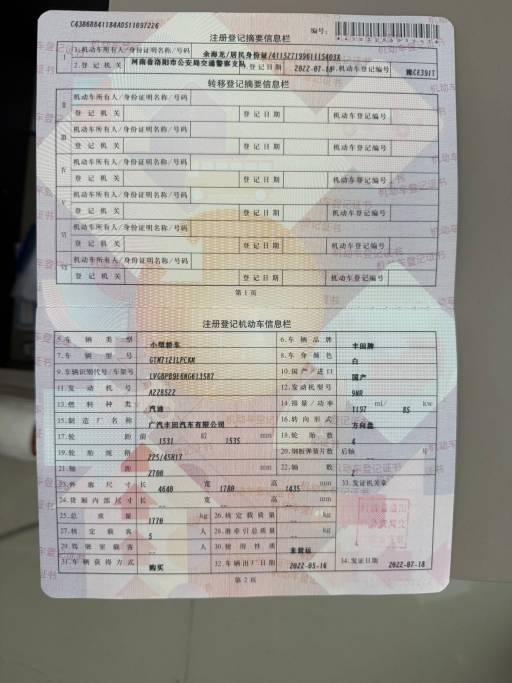 注册登记摘要信息栏
编号:
I
1.机动车所有人/身份证明名称/号码
2.登记机关
河南省洛阳市公安局交通警察支队
3.登记日期
4.机动车登记编号
转移登记摘要信息栏
II
机动车所有人/身份证明名称/号码
登记机关 登记日期 机动车登记编号
III
机动车所有人/身份证明名称/号码
登记机关 登记日期 机动车登记编号
IV
机动车所有人/身份证明名称/号码
登记机关 登记日期 机动车登记编号
V
机动车所有人/身份证明名称/号码
登记机关 登记日期 机动车登记编号
VI
机动车所有人/身份证明名称/号码
登记机关 登记日期 机动车登记编号
VII
机动车所有人/身份证明名称/号码
登记机关 登记日期 机动车登记编号
第1页
注册登记机动车信息栏
5.车辆类型 小型轿车 6.车辆品牌 丰田牌
7.车辆型号 8.车身颜色 白
9.车辆识别代号/车架号 10.国产/进口 国产
11.发动机号 12.发动机型号 9NR
13.燃料种类 汽油 14.排量/功率 1197 ml/ 85 kw
15.制造厂名称 广汽丰田汽车有限公司 16.转向形式 方向盘
17.轮距 前 1531 后 1535 mm 18.轮胎数 4
19.轮胎规格 225/45R17 20.钢板弹簧片数 后轴 片
21.轴距 2700 mm 22.轴数 2
23.外廓尺寸 长 4640 宽 1780 高 1435 mm 33.发证机关章
24.货厢内部尺寸 长 宽 高 mm
25.总质量 1770 kg 26.核定载质量 kg
27.核定载客 5 人 28.准牵引总质量 kg
29.驾驶室载客 人 30.使用性质 非营运
31.车辆获得方式 购买 32.车辆出厂日期 2022-05-16 34.发证日期 2022-07-18
第2页